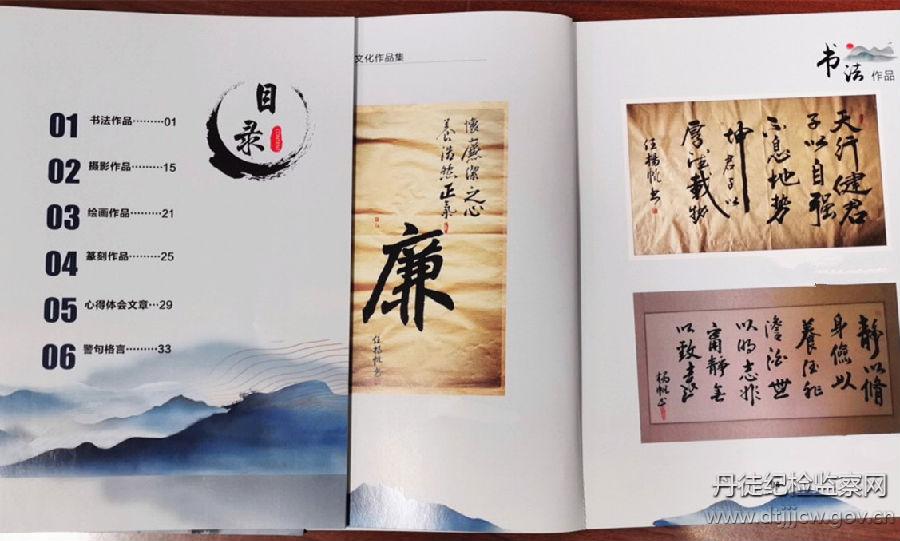 目
录
01 书法作品………01
02 摄影作品………15
03 绘画作品………21
04 篆刻作品………25
05 心得体会文章…29
06 警句格言………33
文化作品集
懷廉潔之心
養浩然正氣
廉
任楊帆书
书法作品
天行健君
子以自强
不息地势
坤君子以
厚德載物
任楊帆书
静以脩
身儉以
養德非
澹泊無
以明志非
甯静無
以致遠
楊帆书
丹徒纪检监察网
www.dtjjcw.gov.cn